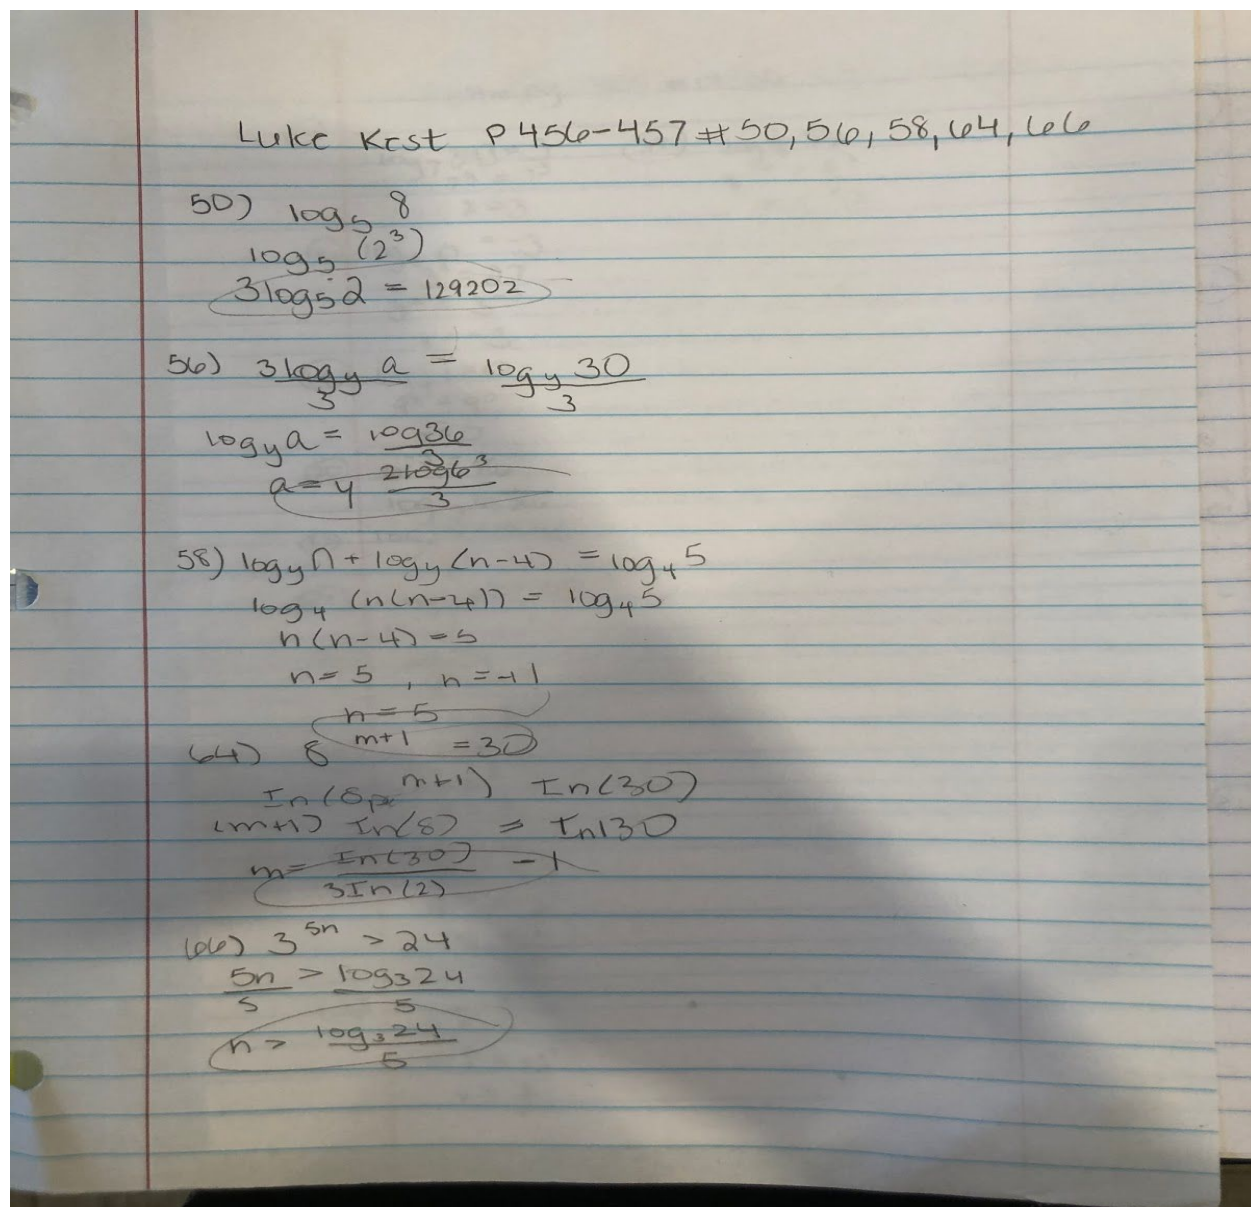 Luke Kest P 456-457 # 50, 56, 58, 64, 66
50) log₅ 8
log₅ (2³)
3log₅2 = 129202
56) 3logy a / 3 = logy 30 / 3
logy a = log36 / 3
a = y 2log6³ / 3
58) logy n + logy (n-4) = log₄ 5
log₄ (n(n-4)) = log₄5
n(n-4) = 5
n = 5 , n = -1
n = 5
64) 8^m+1 = 30
In(8^m+1) In(30)
(m+1) In(8) = In130
m = In(30) / 3In(2) - 1
66) 3^5n > 24
5n / 5 > log₃24 / 5
n > log₃24 / 5